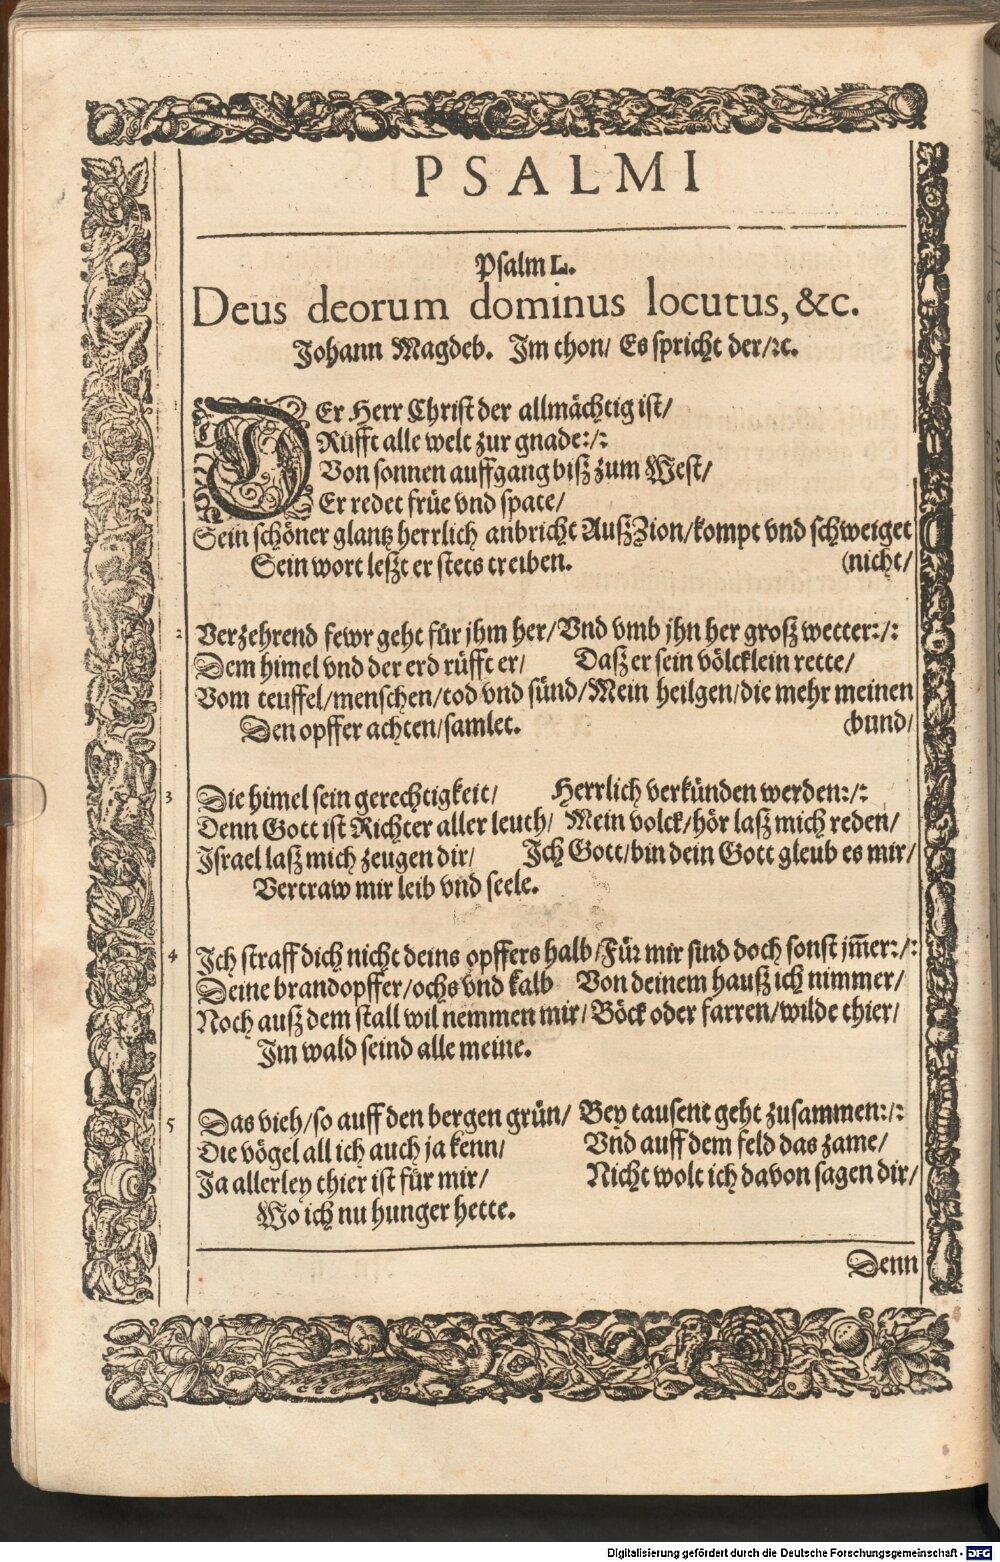 PSALMI
Psalm L.
Deus deorum dominus locutus, &c.
Johann Magdeb. Im thon/ Es spricht der/ꝛc.
DEr Herr Christ der allmächtig ist/
Rüfft alle welt zur gnade:/:
Von sonnen auffgang biß zum West/
Er redet früe vnd spate/
Sein schöner glantz herrlich anbricht Auß Zion/kompt vnd schweiget
Sein wort leßt er stets treiben. (nicht/
2 Verzehrend fewr geht für jhm her/ Vnd vmb jhn her groß wetter:/:
Dem himel vnd der erd rüfft er/ Daß er sein völcklein rette/
Vom teuffel/menschen/tod vnd sünd/Mein heilgen/die mehr meinen
Den opffer achten/samlet. (bund/
3 Die himel sein gerechtigkeit/ Herrlich verkünden werden:/:
Denn Gott ist Richter aller leuth/ Mein volck/hör laß mich reden/
Israel laß mich zeugen dir/ Ich Gott/bin dein Gott gleub es mir/
Vertraw mir leib vnd seele.
4 Ich straff dich nicht deins opffers halb/Für mir sind doch sonst jm̄er:/:
Deine brandopffer/ochs vnd kalb Von deinem hauß ich nimmer/
Noch auß dem stall wil nemmen mir/ Böck oder farren/wilde thier/
Im wald seind alle meine.
5 Das vieh/so auff den bergen grün/ Bey tausent geht zusammen:/:
Die vögel all ich auch ja kenn/ Vnd auff dem feld das zame/
Ja allerley thier ist für mir/ Nicht wolt ich davon sagen dir/
Wo ich nu hunger hette.
Denn
Digitalisierung gefördert durch die Deutsche Forschungsgemeinschaft - DFG